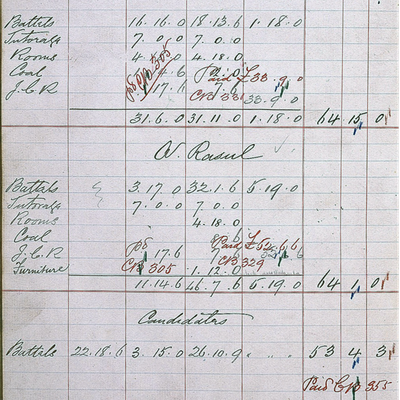 Battels 16.16.0 18.13.6 1.18.0
Tutorage 7.0.0 7.0.0
Rooms 4.18.0
Coal Paid £33.9.0
J.C.R. 17.6 7.6
CB 331 33.9.0
31.6.0 31.11.0 1.18.0 64 15 0
N. Rasul
Battels 3.17.0 32.1.6 5.19.0
Tutorage 7.0.0 7.0.0
Rooms 4.18.0
Coal
J.C.R. 17.6 Paid £52.6.6
Furniture CB 305 1.12.0 CB 329
11.14.6 46.7.6 5.19.0 64 1 0
Candidates
Battels 22.18.6 3.15.0 26.10.9 53 4 3
Paid CB 355